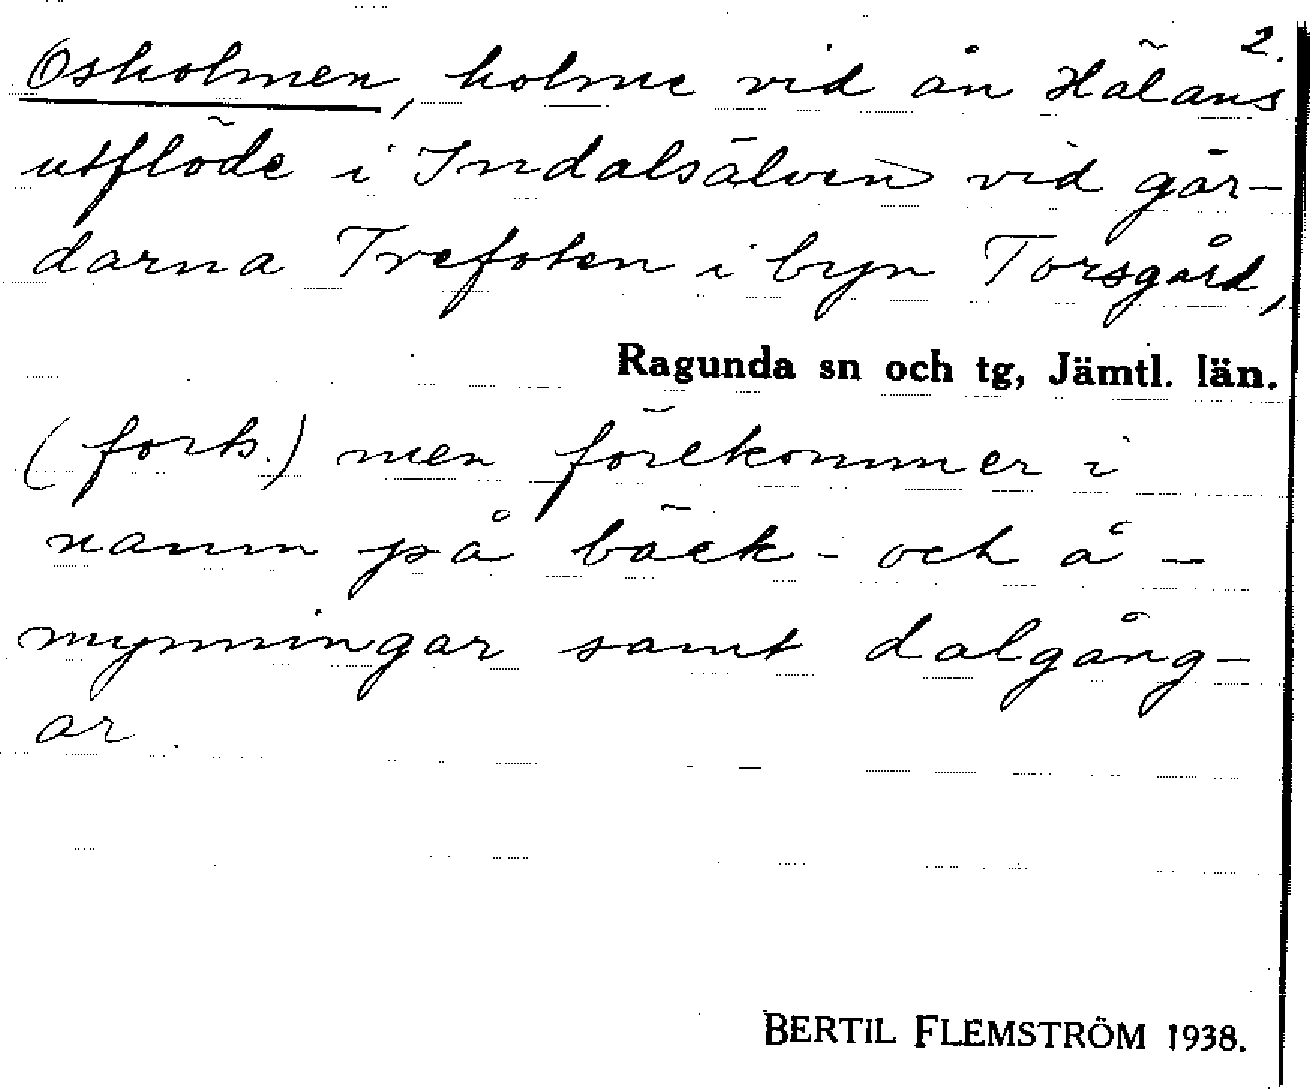 2.
Osholmen, holme vid ån Hälåns
utflöde i Indalsälven vid går-
darna Trefoten i byn Torsgård,
Ragunda sn och tg, Jämtl. län.
(forts.) men förekommer i
namn på bäck- och å-
mynningar samt dalgång-
ar.
BERTIL FLEMSTRÖM 1938.